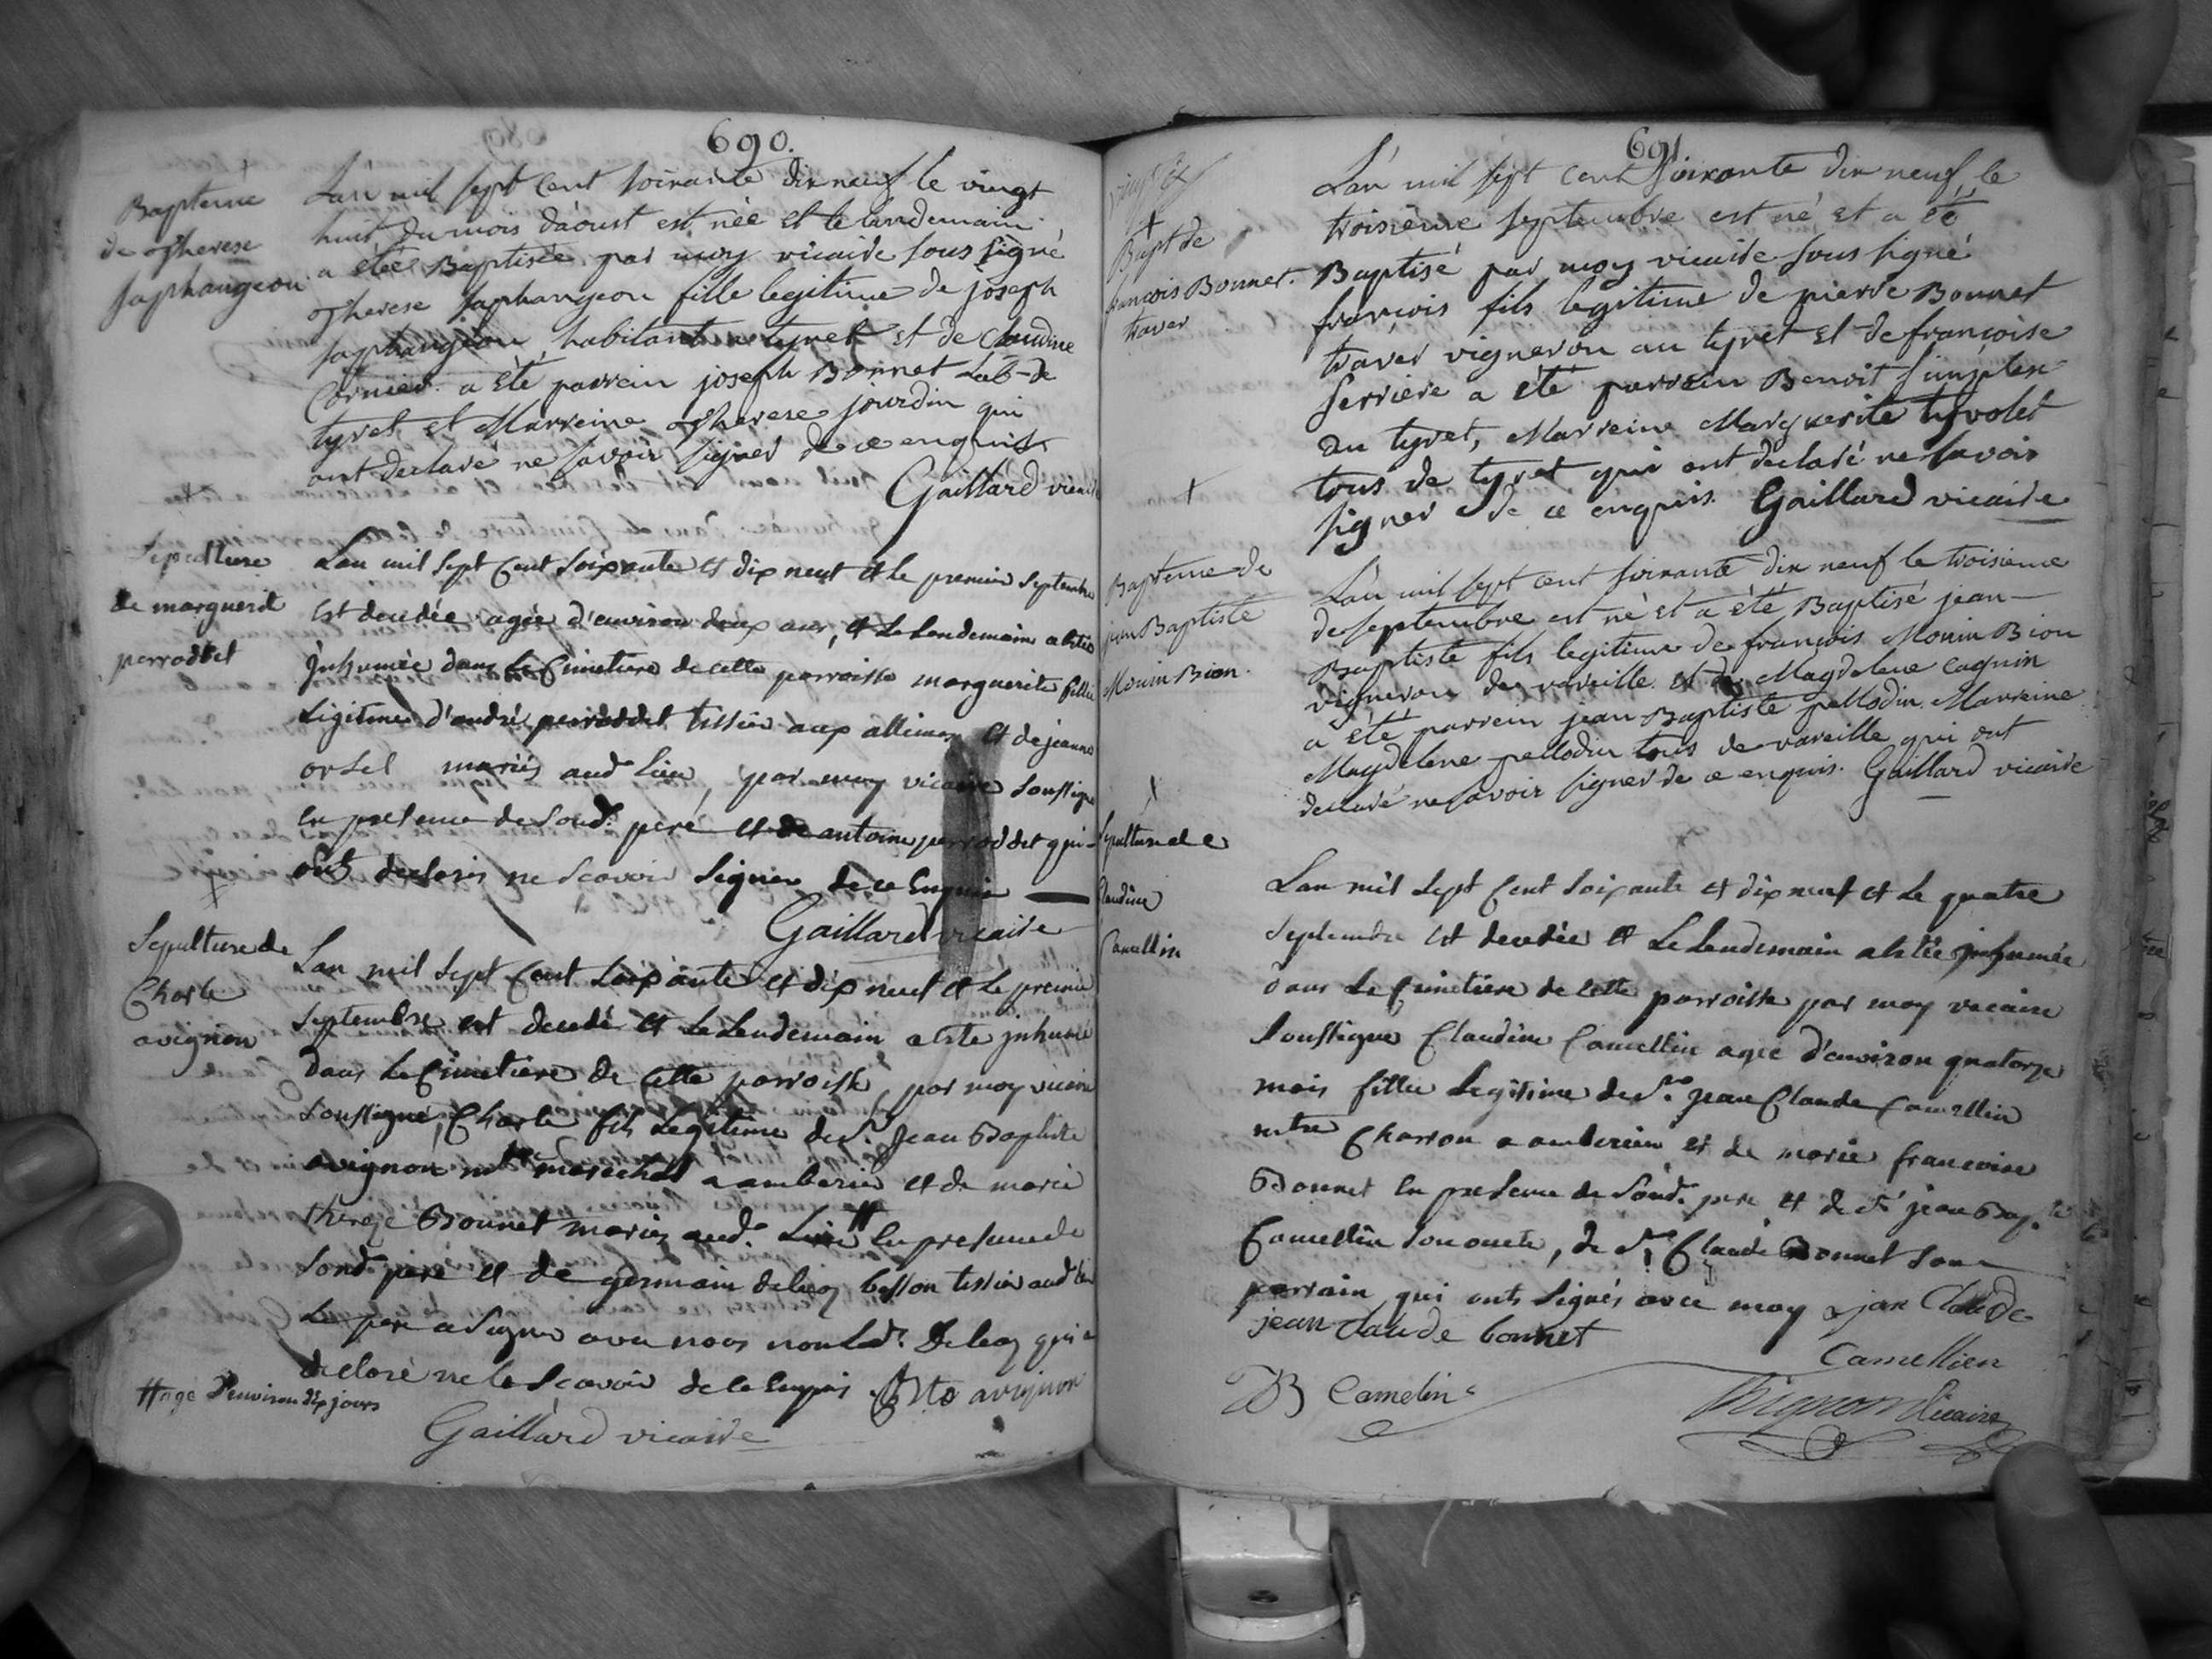 690.
Bapteme
de Therese
saphangeon
L'an mil sept cent soixante dix neuf le vingt
huit du mois d'aoust est née et le lendemain
a étée Baptisée par moy vicaire sous signé
Therese saphangeon fille legitime de joseph
saphangeon habitant a tyret et de Claudine
Cornier a été parrein joseph Bonnet Lab de
tyret et Marreine Therese jourdin qui
ont declaré ne savoir signer de ce enquis
Gaillard vicaire
Sepulture
de marguerit
perroddet
Lan mil sept Cent soixante et dix neuf et le premier septembre
est decedée agée d'environ deux ans, et le lendemain a estée
jnhumée dans le Cimetiere de cette parroisse marguerite fille
Legitime d'andré perroddet tissier aux allimes et de jeanne
orsel mariés aud. lieu, par moy vicaire soussigne
en presence de soud. pere et de antoine perroddet qui
ont declarés ne scavoir signer de ce Enquis
Gaillard vicaire
Sepulture de
Charle
avignon
Lan mil sept Cent soixante et dix neuf et le premier
septembre est decedé et le lendemain a este jnhumé
dans le Cimetiere de cette parroisse, par moy vicaire
soussigné, Charle fils Legitime de sr. Jean Baptiste
avignon mtre marechal a amberieu et de marie
thereze Bonnet mariés aud. Lieu # en presence de
sond. pere et de germain deleaz besson tissier aud. lieu
Le pere a signe avec nous non led. Deleaz qui a
declaré ne le scavoir de ce Enquis Bte avignon
# agé d'environ dix jours
Gaillard vicaire
691
Bapt de
francois Bonnet
traver
L'an mil sept cent soixante dix neuf le
troisième septembre est né et a été
Baptisé par moy vicaire sous signé
françois fils legitime de pierre Bonnet
traver vigneron au tyret et de françoise
ferriere a été parrein Benoit simplex
au tyret, Marreine Marguerite tyvolet
tous de tyret qui ont declaré ne savoir
signer de ce enquis. Gaillard vicaire
Bapteme de
jean Baptiste
Monin Bion.
L'an mil sept cent soixante dix neuf le troisieme
de septembre est né et a été Baptisé jean
Baptiste fils legitime de françois Monin Bion
vigneron de vareille et de Magdelene cagnin
a été parrein jean Baptiste pellodin Marreine
Magdelene pellodin tous de vareille qui ont
declaré ne savoir signer de ce enquis. Gaillard vicaire
Sepulture de
Claudine
Camellin
Lan mil sept Cent soixante et dix neuf et le quatre
septembre est decedée et le lendemain a estée jnhumée
dans le Cimetiere de cette parroisse par moy vicaire
soussigne Claudine Camellin agée d'environ quatorze
mois fille Legitime de sr. jean Claude Camellin
mtre Charron a amberieu et de marie francoise
Bonnet en presence de soud. pere et de sr jean Bapte
Camellin son oncle, de sr. Claude Bonnet son
parrain qui onts signés avec moy jan Claude
jean claude bonnet
Camellien
JB Camelin
vicaire